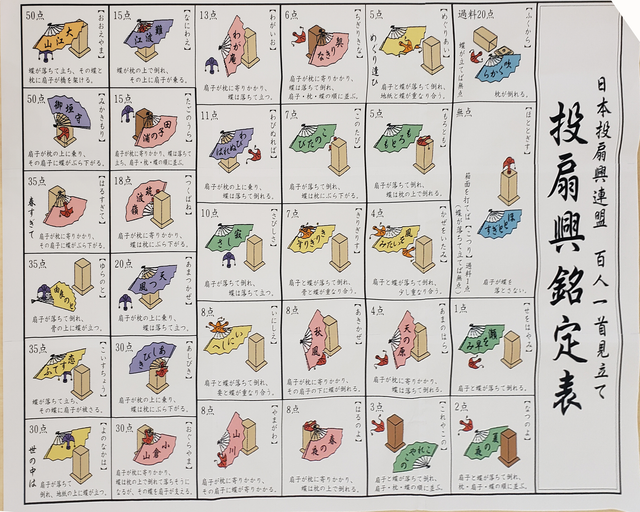 日本投扇興連盟 百人一首見立て
投扇興銘定表
過料20点
【ふくから】
吹
らかく
枕が倒れる。
蝶が立てば無点
無点
【ほととぎす】
ほ
すぎとと
扇子が蝶を
落とさない。
1点
【せをはやみ】
瀬
み早を
扇子と蝶が落ちて倒れ、
2点
【なつのよ】
夏
夜の
扇子と蝶が落ちて倒れ、
枕・扇子・蝶の順に並ぶ。
5点
【めぐりあい】
めぐり逢ひ
扇子と蝶が落ちて倒れ、
地紙と蝶が重なり合う。
5点
【もろとも】
もろとも
扇子が落ちて倒れ、
蝶は枕の上で倒れる。
4点
【かぜをいたみ】
扇子と蝶が落ちて倒れ、
少し重なり合う。
4点
【あまのはら】
天の原
扇子が枕に寄りかかり、
蝶は落ちて倒れる。
3点
【これやこの】
これや
この
扇子と蝶が落ちて倒れ、
扇子・枕・蝶の順に並ぶ。
6点
【ちぎりきな】
契
なきり
扇子が枕に寄りかかり、
蝶は落ちて倒れ、
扇子・枕・蝶の順に並ぶ。
7点
【このたび】
びたのこ
扇子が落ちて倒れ、
蝶は枕にぶら下がる。
7点
【きりぎりす】
扇子と蝶が落ちて倒れ、
骨と蝶が重なり合う。
8点
【あきかぜ】
秋風
扇子が枕に寄りかかり、
その扇子の下に蝶が倒れる。
8点
【はるのよ】
春の
夜
扇子が枕に寄りかかり、
蝶は枕の上で倒れる。
13点
【わがいお】
わが庵
扇子が枕に寄りかかり、
蝶は落ちて立つ。
11点
【わびぬれば】
わび
ばれぬ
扇子が枕の上に乗り、
蝶は落ちて倒れる。
10点
【さびしさ】
寂
さし
扇子が落ちて倒れ、
蝶は落ちて立つ。
8点
【いにしえ】
へしにい
扇子と蝶が落ちて倒れ、
要と蝶が重なり合う。
8点
【やまがわ】
山川
扇子が枕に寄りかかり、
蝶は枕にぶら下がる。
15点
【なにわえ】
難
江波
蝶が枕の上で倒れ、
その上に扇子が乗る。
15点
【たごのうら】
田
浦の子
扇子が枕に寄りかかり、蝶は落ちて
立ち、扇子・枕・蝶の順に並ぶ。
18点
【つくばね】
筑
波
嶺
扇子が枕に寄りかかり、
蝶は枕にぶら下がる。
20点
【あまつかぜ】
天
風つ
扇子が枕の上に乗り、
蝶は落ちて立つ。
30点
【あしびき】
あ
きびし
扇子が枕の上に乗り、
蝶は枕にぶら下がる。
30点
【おぐらやま】
小
山倉
扇子が枕に寄りかかり、
蝶は枕の上で倒れて落ちそうに
なるが、その蝶を扇子が支える。
50点
【おおえやま】
大
山江
蝶が落ちて立ち、その蝶と
枕に扇子が橋を架ける。
50点
【みかきもり】
御
守垣
扇子が枕の上に乗り、
その扇子に蝶がぶら下がる。
35点
【はるすぎて】
春すぎて
扇子が枕に寄りかかり、
その扇子に蝶がぶら下がる。
35点
【ゆらのと】
扇子が落ちて倒れ、
骨の上に蝶が立つ。
35点
【こいすちょう】
恋
ふてす
蝶が落ちて立ち、
その蝶に扇子が被さる。
30点
【よのなかは】
世の中は
扇子が落ちて
倒れ、地紙の上に蝶が立つ。